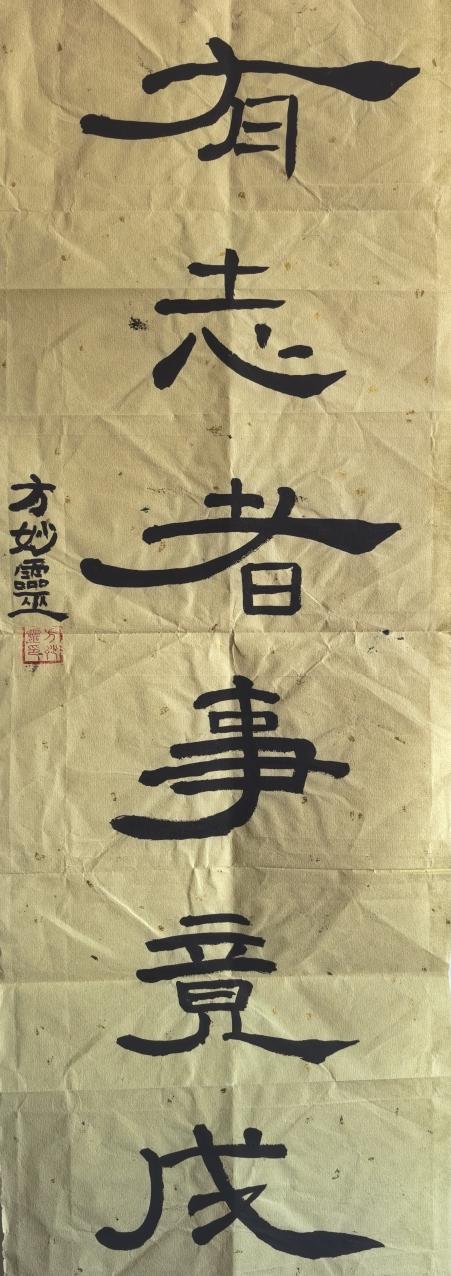 有志者事竟成
方妙靈